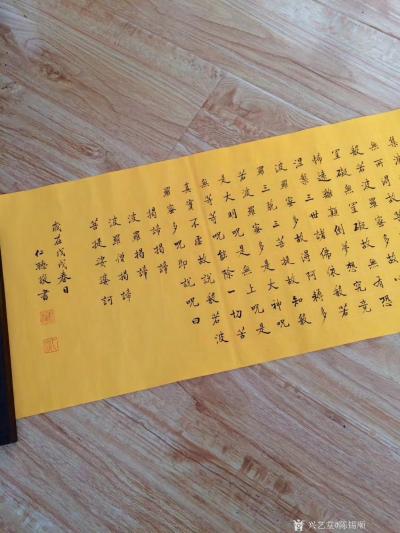 般若波羅蜜多故心無
罣礙無罣礙故無有恐
怖遠離顛倒夢想究竟
涅槃三世諸佛依般若
波羅蜜多故得阿耨多
羅三藐三菩提故知般
若波羅蜜多是大神呪
是大明呪是無上呪是
無等等呪能除一切苦
真實不虛故說般若波
羅蜜多呪即說呪曰
揭諦揭諦
波羅揭諦
波羅僧揭諦
菩提娑婆訶
歲在戊戌春日
仁 敬書
兴艺堂@陈锡顺